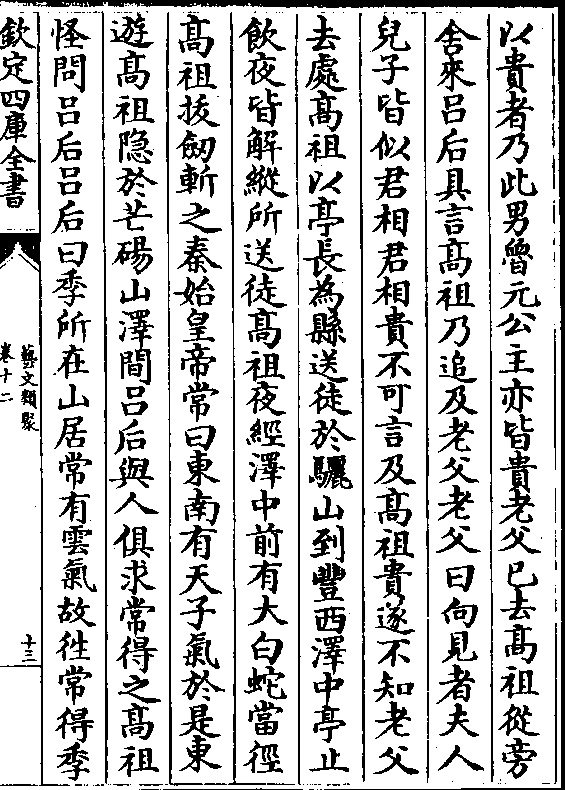 以貴者乃此男魯元公主亦皆貴老父已去髙祖從旁
舍來吕后具言髙祖乃追及老父老父曰向見者夫人
兒子皆似君相君相貴不可言及髙祖貴遂不知老父
去處髙祖以亭長為縣送徒於驪山到豐西澤中亭止
飲夜皆解縱所送徒髙祖夜經澤中前有大白蛇當徑
髙祖拔劒斬之秦始皇帝常曰東南有天子氣於是東
遊髙祖隐於芒碭山澤間吕后與人俱求常得之髙祖
怪問吕后吕后曰季所在山居常有雲氣故徃常得季
欽定四庫全書
藝文類聚
卷十二
十三